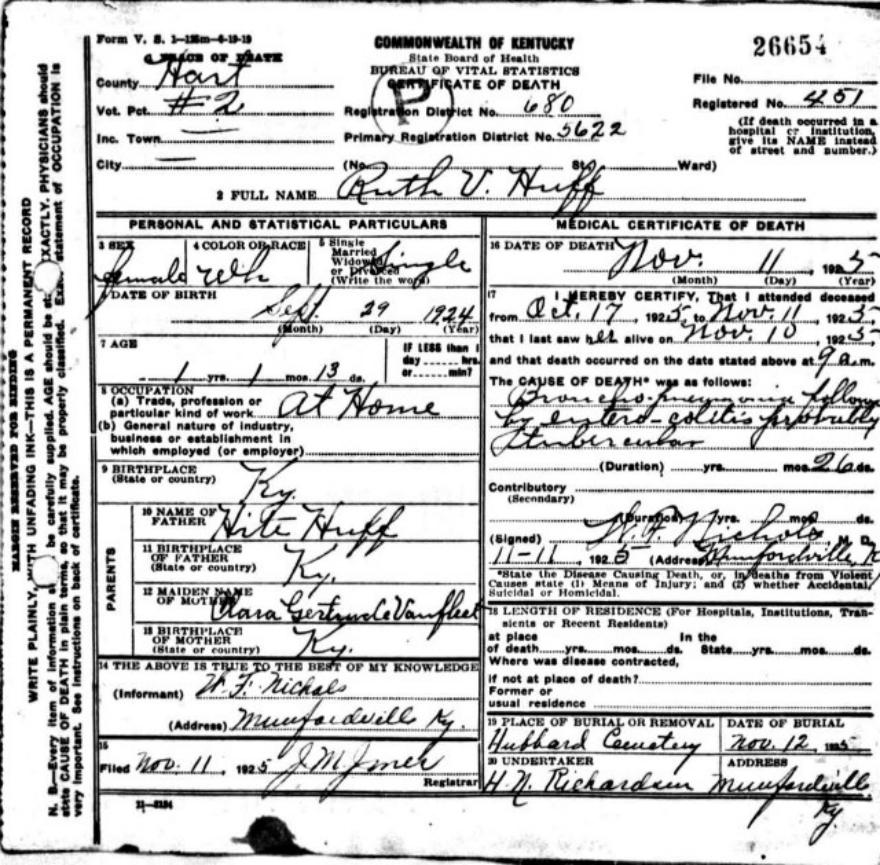 Form V. S. 1—125m—4-19-19
COMMONWEALTH OF KENTUCKY
State Board of Health
BUREAU OF VITAL STATISTICS
CERTIFICATE OF DEATH
26654
PLACE OF DEATH
County Hart
Vot. Pct. #2
Inc. Town
City
P
Registration District No. 680
Primary Registration District No. 5622
(No. St. Ward)
File No.
Registered No. 451
(If death occurred in a
hospital or institution,
give its NAME instead
of street and number.)
2 FULL NAME Ruth V. Huff
PERSONAL AND STATISTICAL PARTICULARS
3 SEX female
4 COLOR OR RACE Wh
5 Single
Married
Widowed
or Divorced
(Write the word)
Single
DATE OF BIRTH
Sept. 29 1924
(Month) (Day) (Year)
7 AGE
1 yrs. 1 mos. 13 ds.
IF LESS than 1
day ...... hrs.
or ...... min?
8 OCCUPATION
(a) Trade, profession or
particular kind of work At Home
(b) General nature of industry,
business or establishment in
which employed (or employer)
9 BIRTHPLACE
(State or country) Ky.
PARENTS
10 NAME OF
FATHER Hite Huff
11 BIRTHPLACE
OF FATHER
(State or country) Ky.
12 MAIDEN NAME
OF MOTHER Clara Gertrude Vanfleet
13 BIRTHPLACE
OF MOTHER
(State or country) Ky.
14 THE ABOVE IS TRUE TO THE BEST OF MY KNOWLEDGE
(Informant) W. F. Nichols
(Address) Munfordville Ky.
15
Filed Nov. 11, 1925 J. M.
Registrar
11—3184
MEDICAL CERTIFICATE OF DEATH
16 DATE OF DEATH
Nov. 11, 1925
(Month) (Day) (Year)
17 I HEREBY CERTIFY, That I attended deceased
from Oct. 17, 1925, to Nov. 11, 1925
that I last saw her alive on Nov. 10, 1925
and that death occurred on the date stated above at 9 a.m.
The CAUSE OF DEATH* was as follows:
Broncho-pneumonia follow
by entero-colitis probably
tubercular
(Duration) yrs. mos. 26 ds.
Contributory
(Secondary)
(Duration) yrs. mos. ds.
(Signed) Nichols, M. D.
11-11, 1925 (Address) Munfordville, K
*State the Disease Causing Death, or, in deaths from Violent
Causes state (1) Means of Injury; and (2) whether Accidental,
Suicidal or Homicidal.
18 LENGTH OF RESIDENCE (For Hospitals, Institutions, Tran-
sients or Recent Residents)
at place In the
of death yrs. mos. ds. State yrs. mos. ds.
Where was disease contracted,
if not at place of death?
Former or
usual residence
19 PLACE OF BURIAL OR REMOVAL
Hubbard Cemetery
DATE OF BURIAL
Nov. 12, 1925
20 UNDERTAKER
H. N. Richardson
ADDRESS
Munfordville
Ky
MARGIN RESERVED FOR BINDING
WRITE PLAINLY, WITH UNFADING INK—THIS IS A PERMANENT RECORD
N. B.—Every item of information be carefully supplied. AGE should be EXACTLY. PHYSICIANS should
state CAUSE OF DEATH in plain terms, so that it may be properly classified. statement of OCCUPATION is
very important. See instructions on back of certificate.